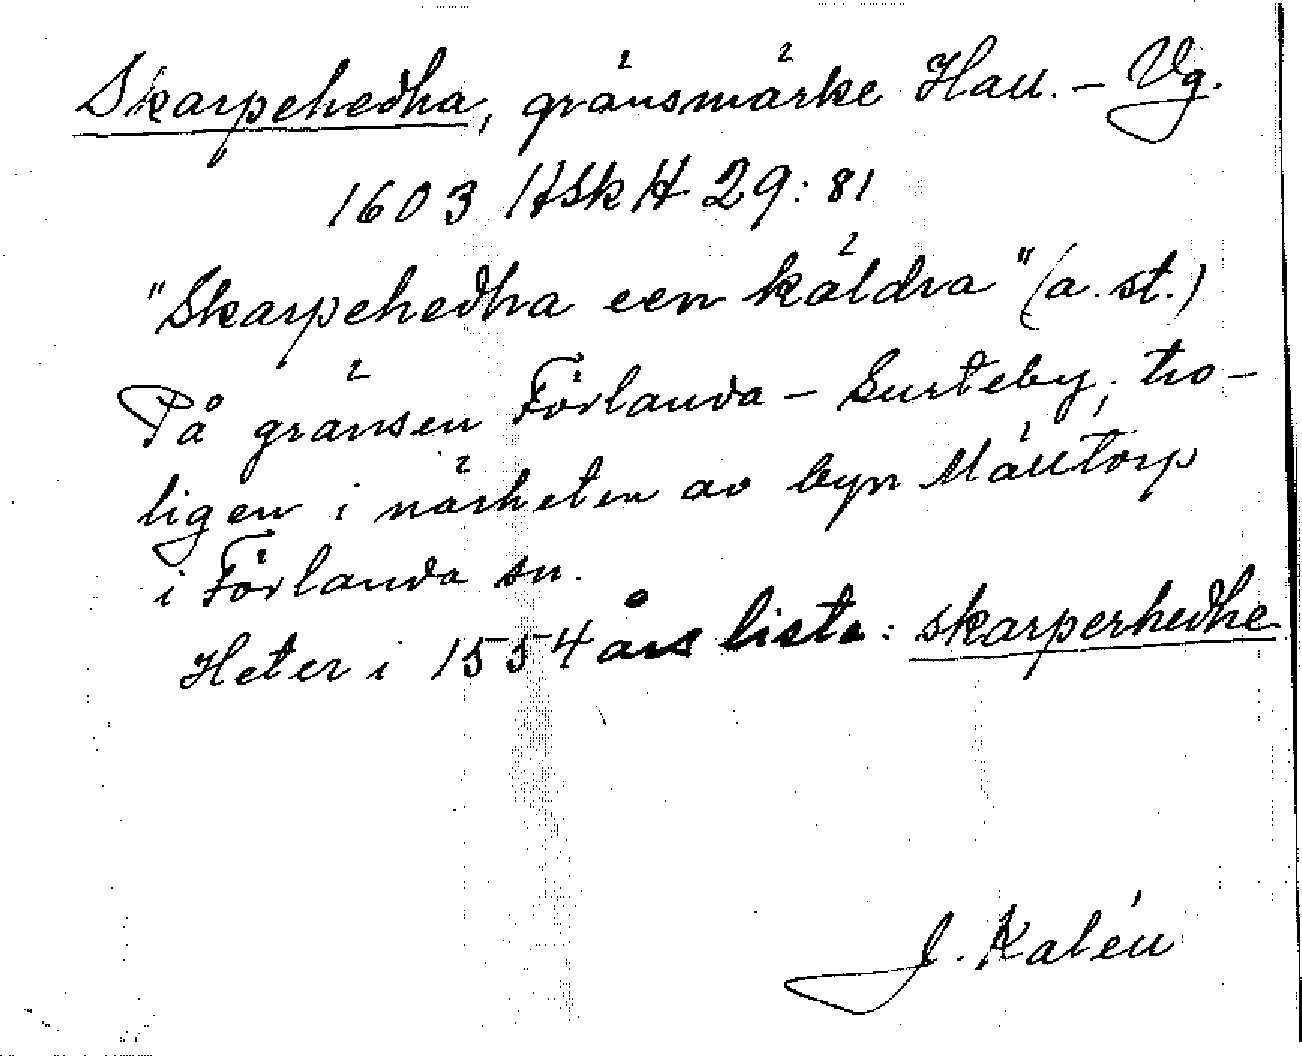 Skarpehedha, gränsmärke Hall. – Vg.
1603 HSkH 29:81
"Skarpehedha een käldra" (a. st.)
På gränsen Förlanda – Surteby, tro-
ligen i närheten av byn Mälltorp
i Förlanda sn.
Heter i 1554 års lista: skarperhedhe
J. Kalén